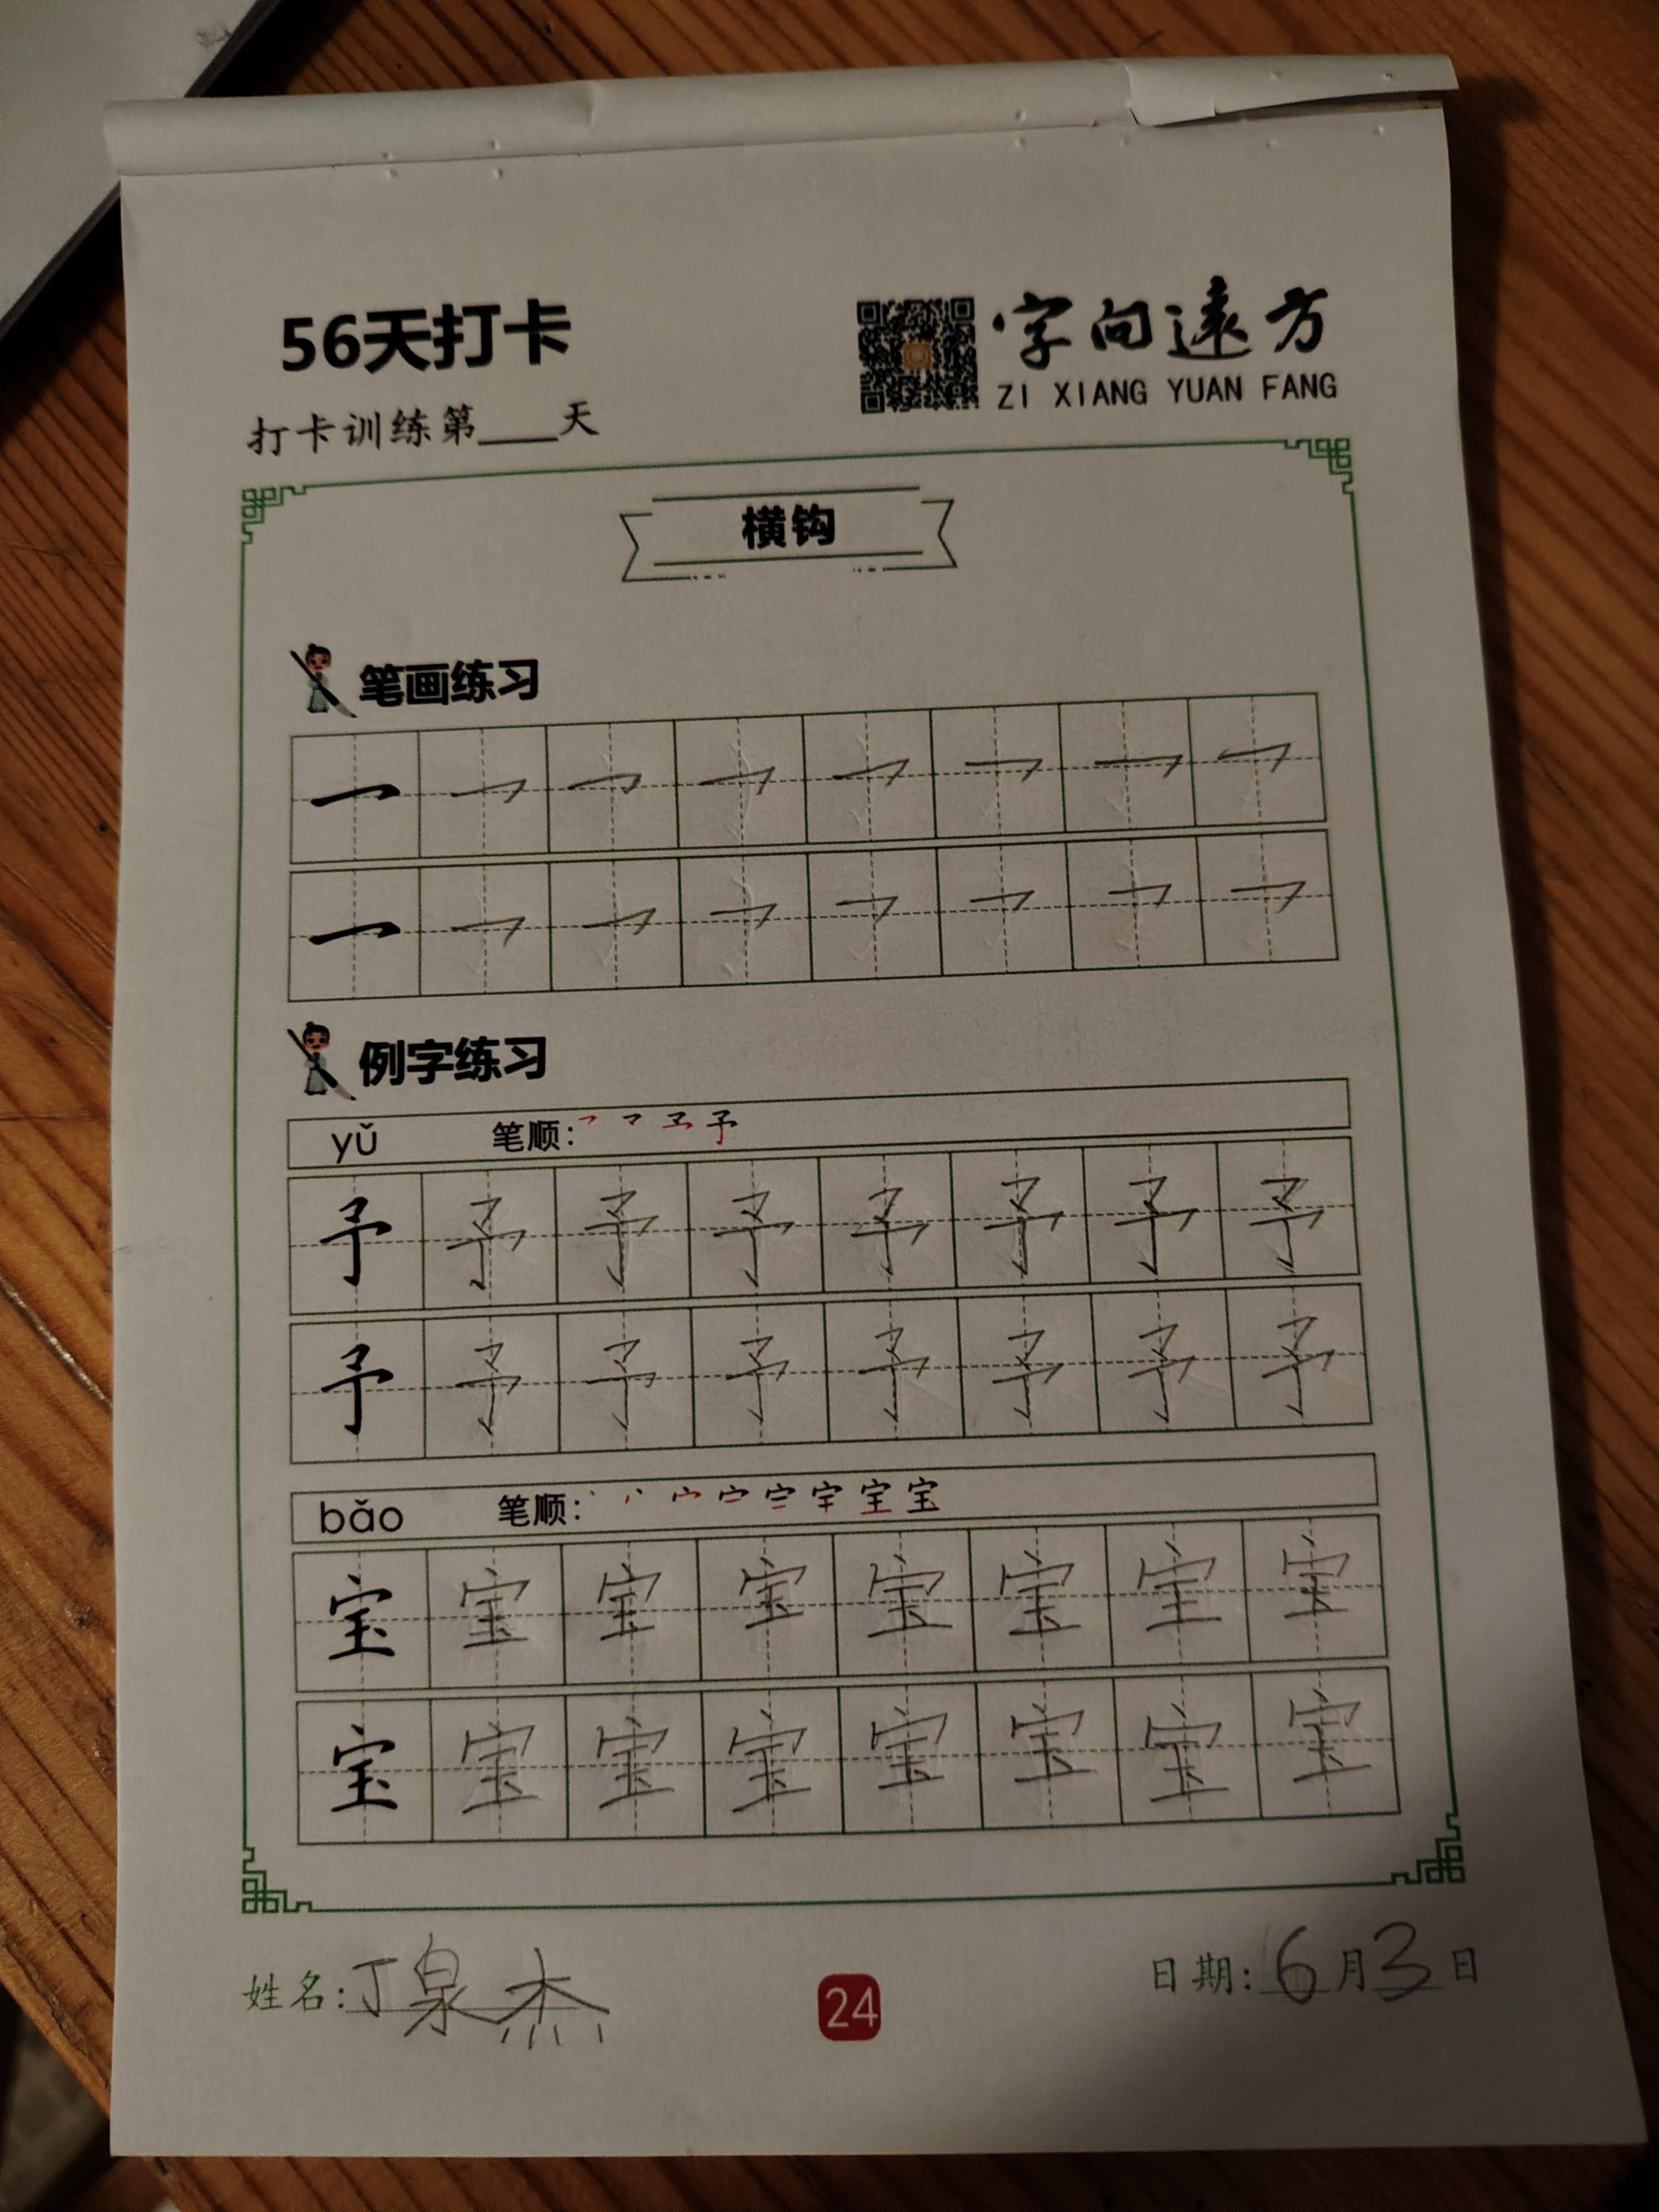 56天打卡
字向遠方
ZI XIANG YUAN FANG
打卡训练第____天
横钩
笔画练习
例字练习
yǔ 笔顺:
予 予 予 予 予 予 予 予
予 予 予 予 予 予 予 予
bǎo 笔顺:
宝 宝 宝 宝 宝 宝 宝 宝
宝 宝 宝 宝 宝 宝 宝 宝
姓名:丁泉杰
24
日期:6月3日